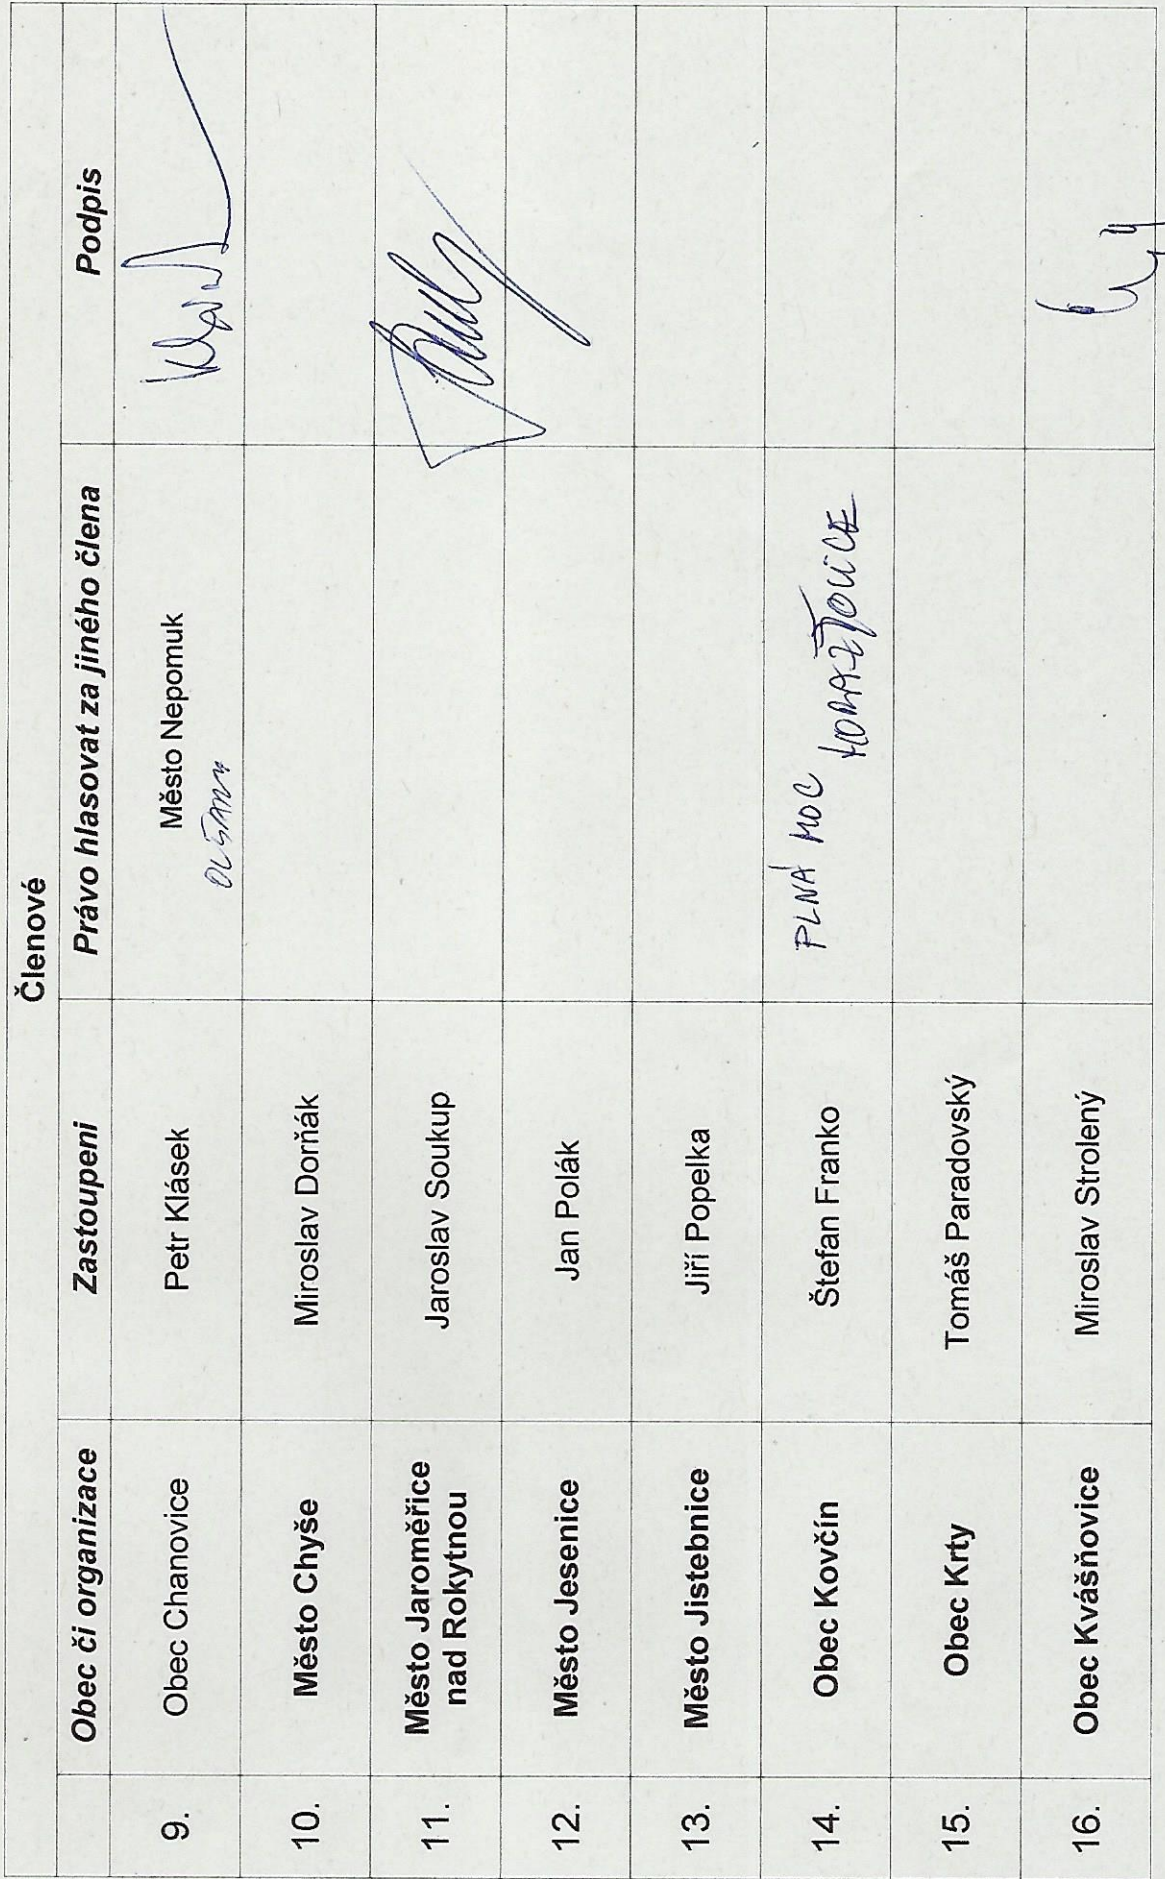 Členové
Obec či organizace Zastoupeni Právo hlasovat za jiného člena Podpis
9. Obec Chanovice Petr Klásek Město Nepomuk
OLŠANY
10. Město Chyše Miroslav Dorňák
11. Město Jaroměřice nad Rokytnou Jaroslav Soukup
12. Město Jesenice Jan Polák
13. Město Jistebnice Jiří Popelka
14. Obec Kovčín Štefan Franko PLNÁ MOC
HORAŽĎOVICE
15. Obec Krty Tomáš Paradovský
16. Obec Kvášňovice Miroslav Strolený